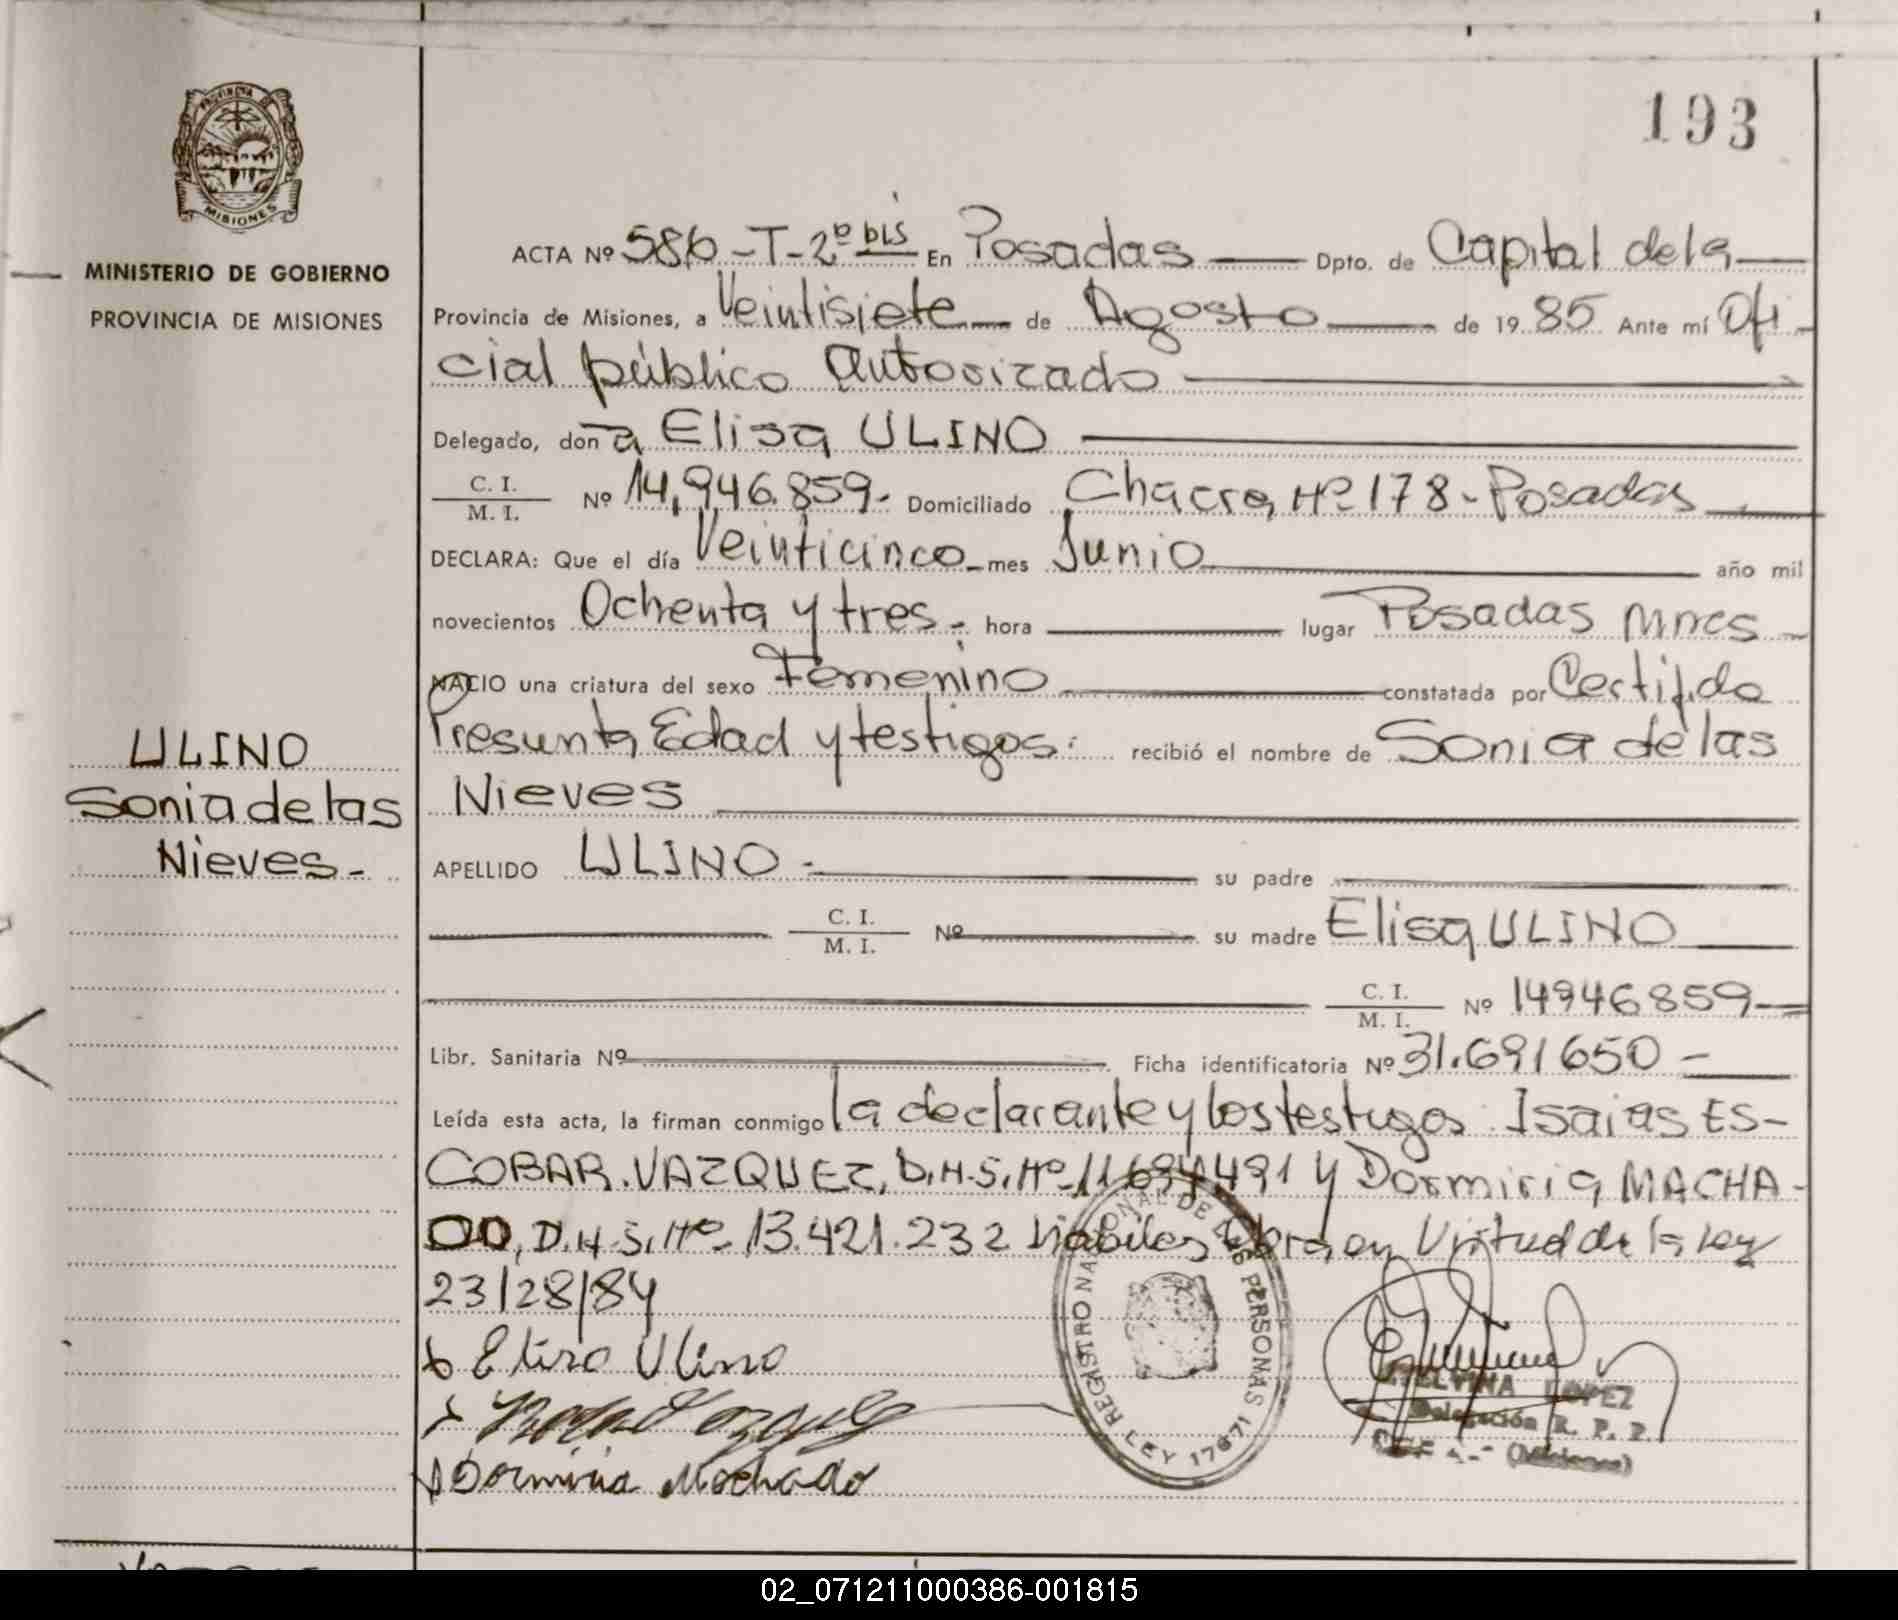 193
PROVINCIA DE
MISIONES
MINISTERIO DE GOBIERNO
PROVINCIA DE MISIONES
ULINO
Sonia de las
Nieves.-
ACTA Nº 586-T-2º bis En Posadas Dpto. de Capital de la
Provincia de Misiones, a Veintisiete de Agosto de 1985 Ante mí Ofi
cial público Autorizado
Delegado, don a Elisa ULINO
C. I. / M. I. Nº 14,946.859.- Domiciliado Chacra Nº 178 - Posadas
DECLARA: Que el día Veinticinco mes Junio año mil
novecientos Ochenta y tres.- hora lugar Posadas Mnes
NACIO una criatura del sexo Femenino constatada por Certif. de
Presunta Edad y testigos: recibió el nombre de Sonia de las
Nieves
APELLIDO ULINO.- su padre
C. I. / M. I. Nº su madre Elisa ULINO
C. I. / M. I. Nº 14946859
Libr. Sanitaria Nº Ficha identificatoria Nº 31.691650
Leída esta acta, la firman conmigo la declarante y los testigos: Isaias ES-
COBAR.VAZQUEZ, Nº y Dormiria MACHA-
DO, Nº 13.421.232 hábiles Obra en Virtud de la Ley
23/28/84
Elisa Ulino
Dormiria Machado
REGISTRO NACIONAL DE LAS PERSONAS
LEY 17671
LOPEZ
Delegación R. P. P.
(Misiones)
02_071211000386-001815